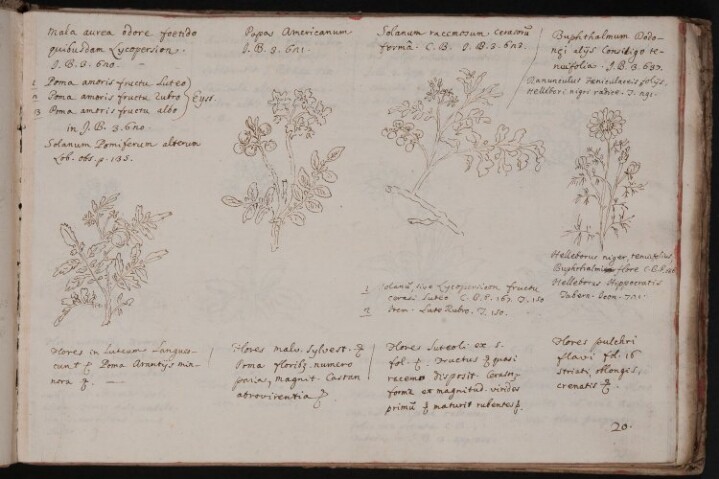 Mala aurea odore foetido
quibusdam Lycopersion.
J. B. 3. 620.
1 Poma amoris fructu Luteo
2 Poma amoris fructu Rubro
3 Poma amoris fructu albo
Eyst.
in J. B. 3. 620.
Solanum Pomiferum alterum
Lob. obs. p. 135.
Flores in Luteum Langues-
cunt Poma Arantijs mi-
nora
Papas Americanum
J. B. 3. 621.
Flores malv. sylvest.
Poma florib. numero
paria, magnit. Castan
atrovirentia
Solanum racemosum cerasorũ
formâ. C. B. J. B. 3. 622.
1 Solanũ, sive Lycopersicon fructu
cerasi Luteo C. B. P. 167. T. 150
2 Item. Lute Rubro. T. 150.
Flores Luteoli ex 5.
fol. Fructus quasi
racemo disposit. Cerasor
formâ et magnitud. virides
primũ maturit rubentes
Buphthalmum Dodo-
nęi alijs Consiligo te-
nuifolia. J. B. 3.
Ranunculus Feniculaceis folijs,
Hellebori nigri radice. T. 291.
Helleborus niger, tenuifolius
Buphthalmi flore C. B. P.
Helleborus Hippocratis
Tabern. Icon. 721.
Flores pulchri
flavi fol. 16
striatis, oblongis,
crenatis
20.